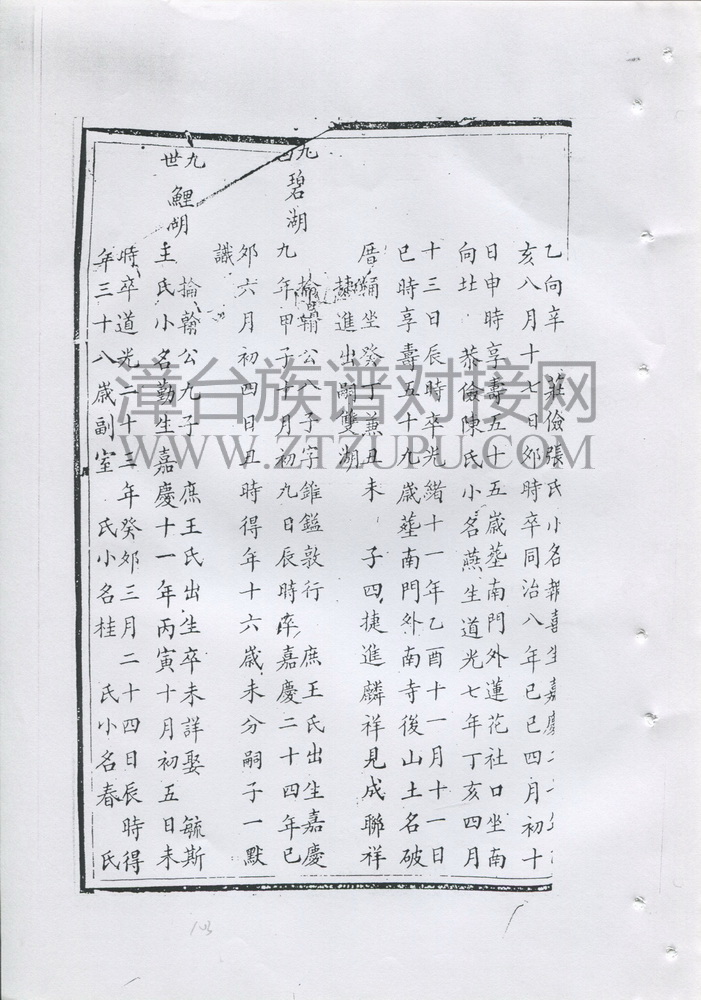 乙向辛　莊儉張氏小名報喜生嘉慶二十
亥八月十七日卯時卒同治八年己巳四月初十
日申時享壽五十五歲塟南門外蓮花社口坐南
向北　恭儉陳氏小名燕生道光七年丁亥四月
十三日辰時卒光緒十一年乙酉十一月十一日
巳時享壽五十九歲塟南門外南寺後山土名破
厝　坐癸丁兼丑未　子四捷進麟祥見成聯祥
捷進出嗣雙湖
九　碧湖　掄翰公八子字錐鎰敦行　庶王氏出生嘉慶
九年甲子十月初九日辰時卒嘉慶二十四年己
卯六月初四日丑時得年十六歲未分嗣子一默
識
九世　鯉湖　掄翰公九子　庶王氏出生卒未詳娶　毓斯
王氏小名勤生嘉慶十一年丙寅十月初五日未
時卒道光二十三年癸卯三月二十四日辰時得
年三十八歲副室　氏小名桂　氏小名春　氏
漳台族谱对接网
WWW.ZTZUPU.COM